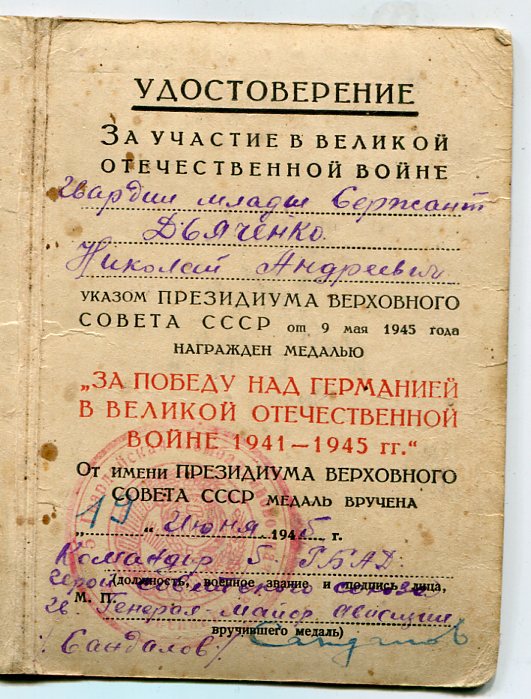 УДОСТОВЕРЕНИЕ
ЗА УЧАСТИЕ В ВЕЛИКОЙ
ОТЕЧЕСТВЕННОЙ ВОЙНЕ
Гвардии младш Сержант
ДЬЯЧЕНКО
Николай Андреевич
УКАЗОМ ПРЕЗИДИУМА ВЕРХОВНОГО
СОВЕТА СССР от 9 мая 1945 года
НАГРАЖДЕН МЕДАЛЬЮ
„ЗА ПОБЕДУ НАД ГЕРМАНИЕЙ
В ВЕЛИКОЙ ОТЕЧЕСТВЕННОЙ
ВОЙНЕ 1941—1945 гг.“
От имени ПРЕЗИДИУМА ВЕРХОВНОГО
СОВЕТА СССР МЕДАЛЬ ВРУЧЕНА
„19“ Июня 1945 г.
Командир 5 ГБАД
Герой Советского Союза
(должность, военное звание и подпись лица,
М. П.
гв Генерал-Майор Авиации
вручившего медаль)
/Сандалов/ Сандалов